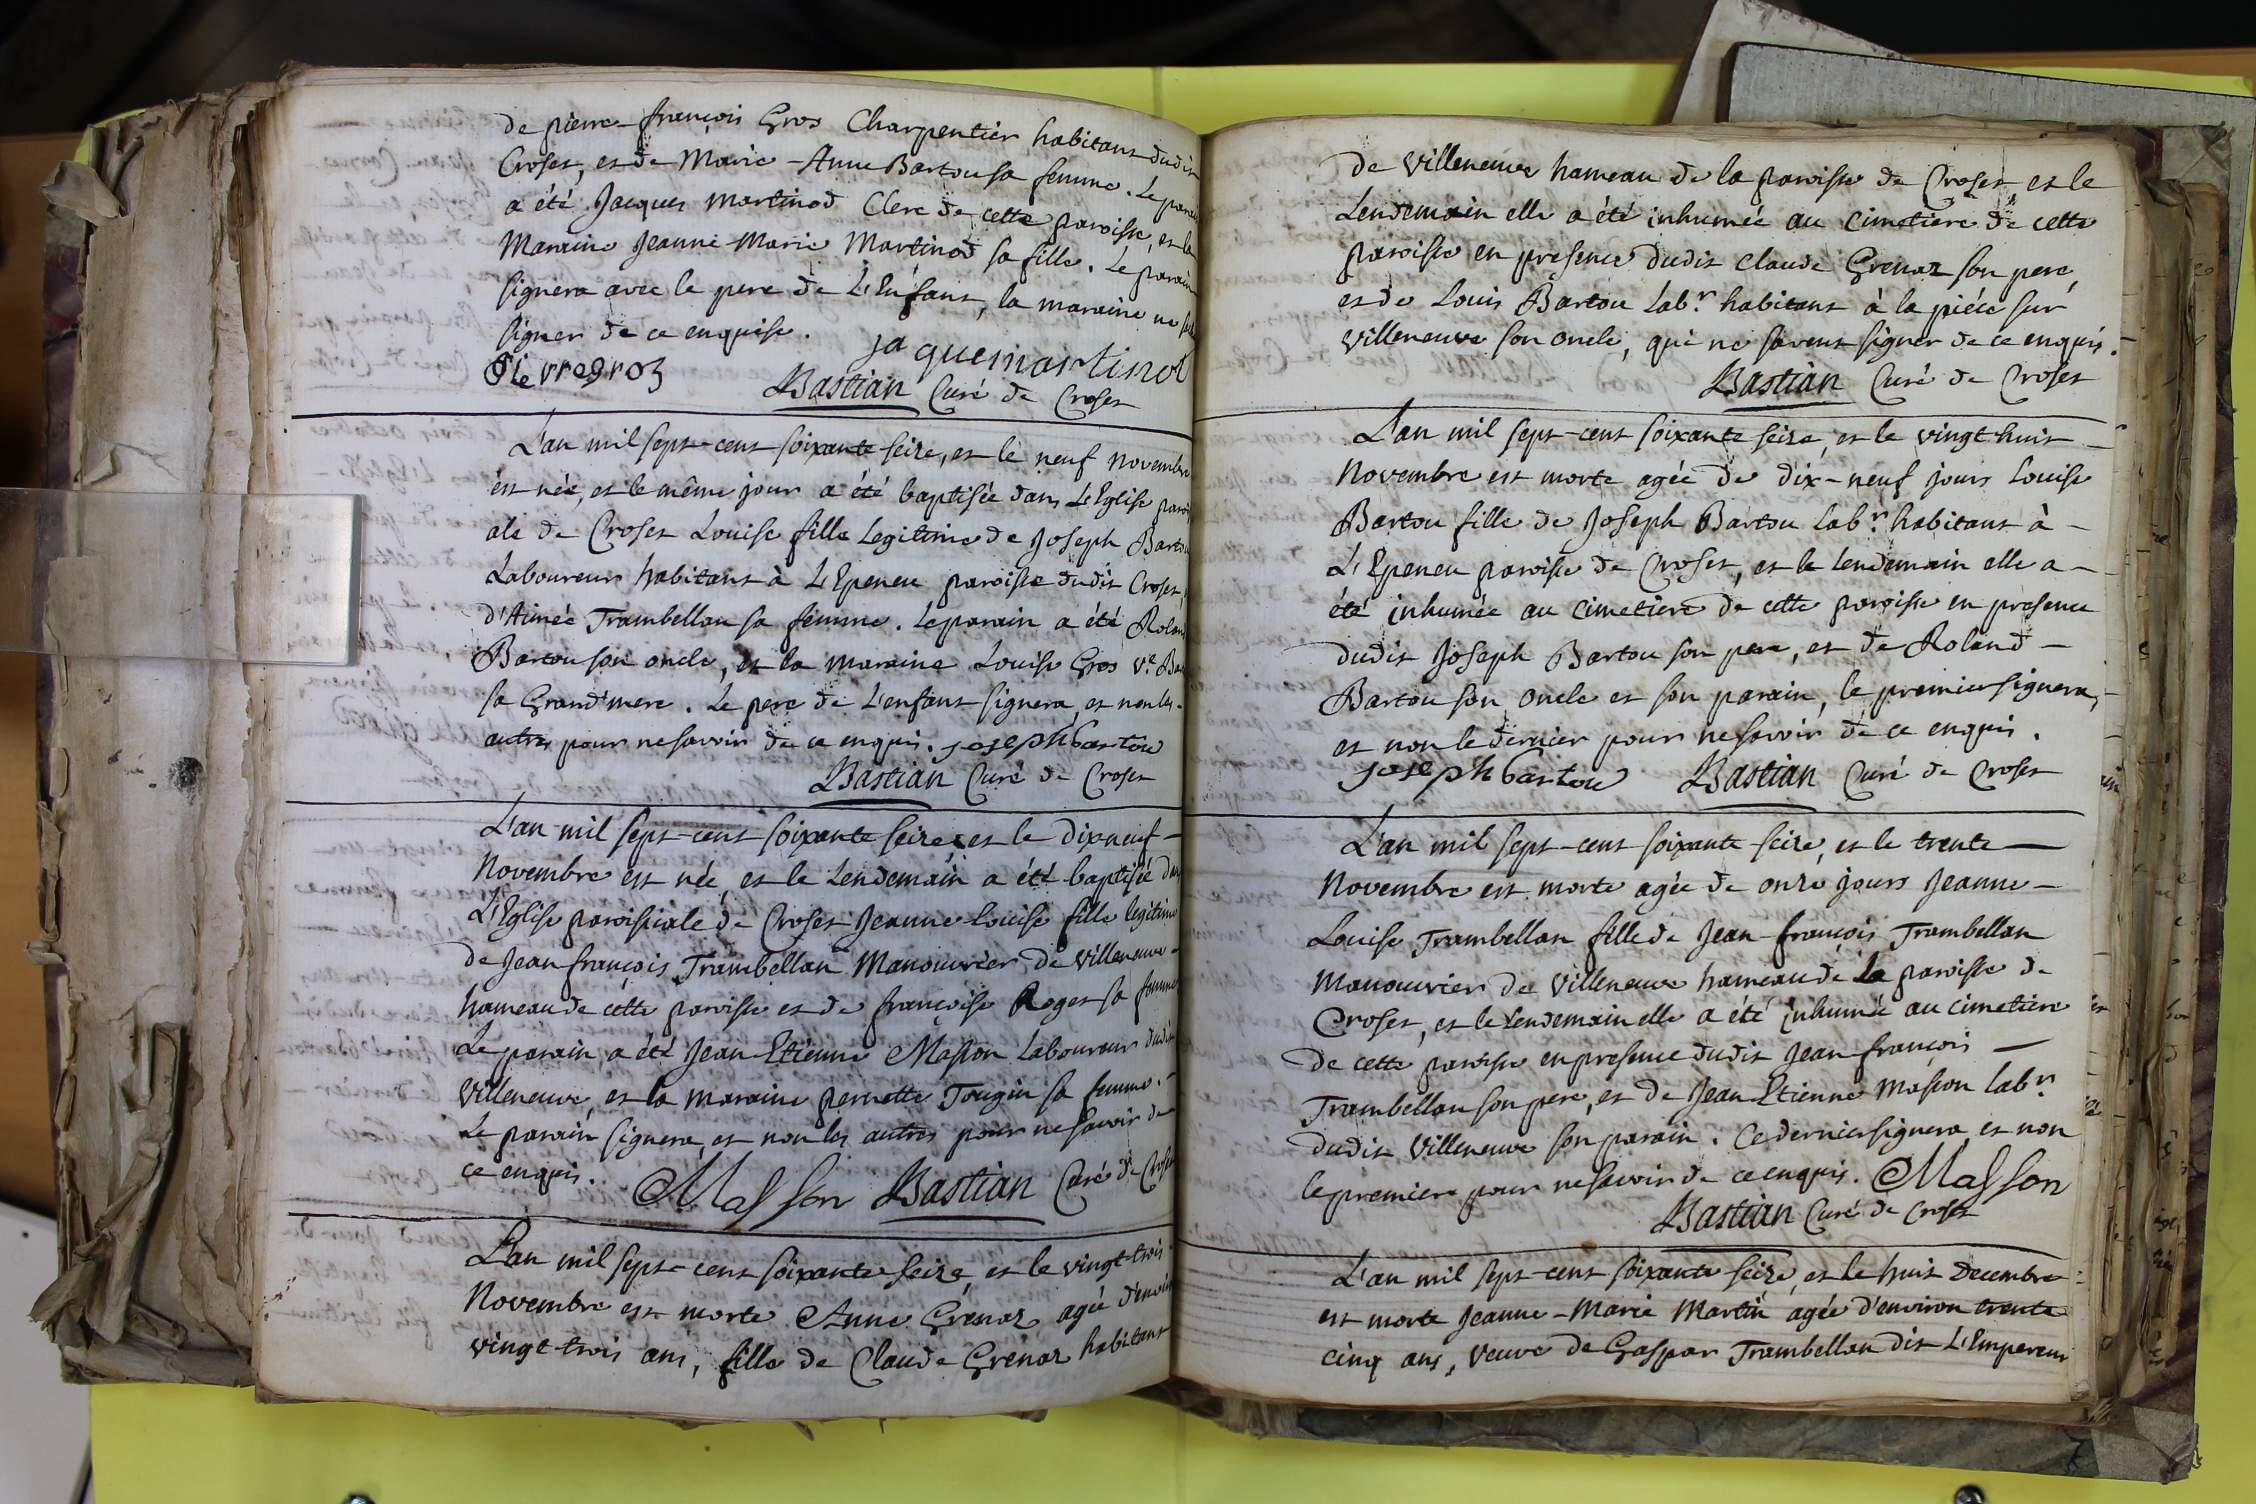 de pierre-françois Gros Charpentier habitant dudit
Croset, et de Marie-Anne Bartou sa femme. Le parain
a été Jacques Martinod Clerc de cette paroisse, et la
Maraine Jeanne-Marie Martinod sa fille. Le parain
signera avec le pere de L'Enfant, la maraine ne
signer de ce enquise.
Pierregroz
jaquemartinod
Bastian Curé de Croset
L'an mil sept-cent soixante seize, et le neuf Novembre
est née, et le même jour a été baptisée dans L'Eglise paroi
ale de Croset Louise fille Legitime de Joseph Bartou
Laboureur habitant à L'Epeneu paroisse dudit Croset,
d'Aimée Trambellan sa femme. Le parain a été Roland
Bartou son oncle, et la maraine Louise Gros Ve. Bar
sa Grand'mere. Le pere de L'enfant signera, et non les
autres pour ne savoir de ce enquis. josephbartou
Bastian Curé de Croset
L'an mil sept-cent soixante seize, et le dixneuf
Novembre est née, et le Lendemain a été baptisée dans
L'Eglise paroissiale de Croset Jeanne-Louise fille legitime
de Jean françois Trambellan Manouvrier de Villeneuve
hameau de cette paroisse et de françoise Roget sa femme
Le parain a été Jean-Etienne Masson Laboureur dudit
Villeneuve, et la maraine pernette Tougin sa femme.
Le parain signera, et non les autres pour ne savoir de
ce enquis.
Masson Bastian Curé de Croset
L'an mil sept-cent soixante seize, et le vingt-trois
Novembre est morte Anne Grenaz agée d'environ
vingt-trois ans, fille de Claude Grenaz habitant
de Villeneuve hameau de la paroisse de Croset et le
Lendemain elle a été inhumée au cimetiere de cette
paroisse en presence dudit Claude Grenaz son pere,
et de Louis Bartou Labr. habitant à la piéce sur
Villeneuve son oncle, qui ne savent signer de ce enquis.
Bastian Curé de Croset
L'an mil sept-cent soixante seize, et le vingt-huit
Novembre est morte agée de dix-neuf jours Louise
Bartou fille de Joseph Bartou Labr. habitant à
L'Epeneu paroisse de Croset, et le Lendemain elle a
été inhumée au cimetiere de cette paroisse en presence
dudit Joseph Bartou son pere, et de Roland
Bartou son oncle et son parain, le premier signera,
et non le dernier pour ne savoir de ce enquis.
josephbartou Bastian Curé de Croset
L'an mil sept-cent soixante seize, et le trente
Novembre est morte agée de onze jours Jeanne-
Louise Trambellan fille de Jean-françois Trambellan
Manouvrier de Villeneuve hameau de la paroisse de
Croset, et le Lendemain elle a été inhumée au cimetiere
de cette paroisse en presence dudit Jean françois
Trambellan son pere, et de Jean Etienne Masson Labr.
dudit Villeneuve son parain. Ce dernier signera, et non
le premiere pour ne savoir de ce enquis. Masson
Bastian Curé de Croset
L'an mil sept-cent soixante seize, et le huit Decembre
est morte Jeanne-Marie Martin agée d'environ trente
cinq ans, Veuve de Gaspar Trambellan dit L'Empereur